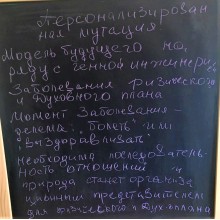 Персонализирован
ная мутация
Модель будущего на,
ряду с генной инженери,
Заболевания физического
и духовного плана
Момент Заболевания -
делема, болеть или
"выздоравливать"
необходима последователь
ность отношений
природа станет организ
представителем
для физического и дух. плана